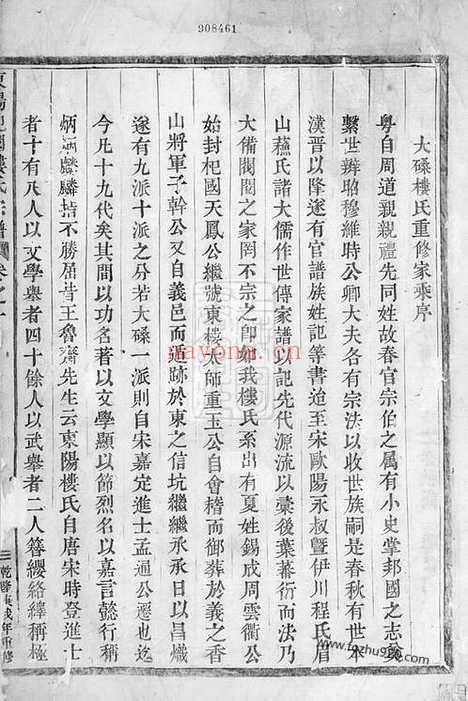 908461
大磉樓氏重修家乘序
粵自周道親親禮先同姓故春官宗伯之屬有小史掌邦國之志奠
繫世辨昭穆維時公卿大夫各有宗法以收世族嗣是春秋有世本
漢晉以降遂有官譜族姓記等書迨至宋歐陽永叔曁伊川程氏眉
山蘇氏諸大儒作世傳家譜以記先代源流以彙後葉蕃衍而法乃
大備閥閱之家罔不宗之卽如我樓氏系出有夏姓錫成周雲衢公
始封杞國天鳳公繼號東樓太師重玉公自會稽而御葬於義之香
山將軍子幹公又自義邑而造跡於東之信坑繼繼承承日以昌熾
遂有九派十派之分若大磉一派則自宋嘉定進士孟通公遷也迄
今凡十九代矣其間以功名著以文學顯以節烈名以嘉言懿行稱
炳炳麟麟指不勝屈昔王魯齋先生云東陽樓氏自唐宋時登進士
者十有八人以文學舉者四十餘人以武舉者二人簪纓絡繹稱極
東陽 樓氏宗譜 卷之一
三 乾隆庚戌年重修
nayona.cn